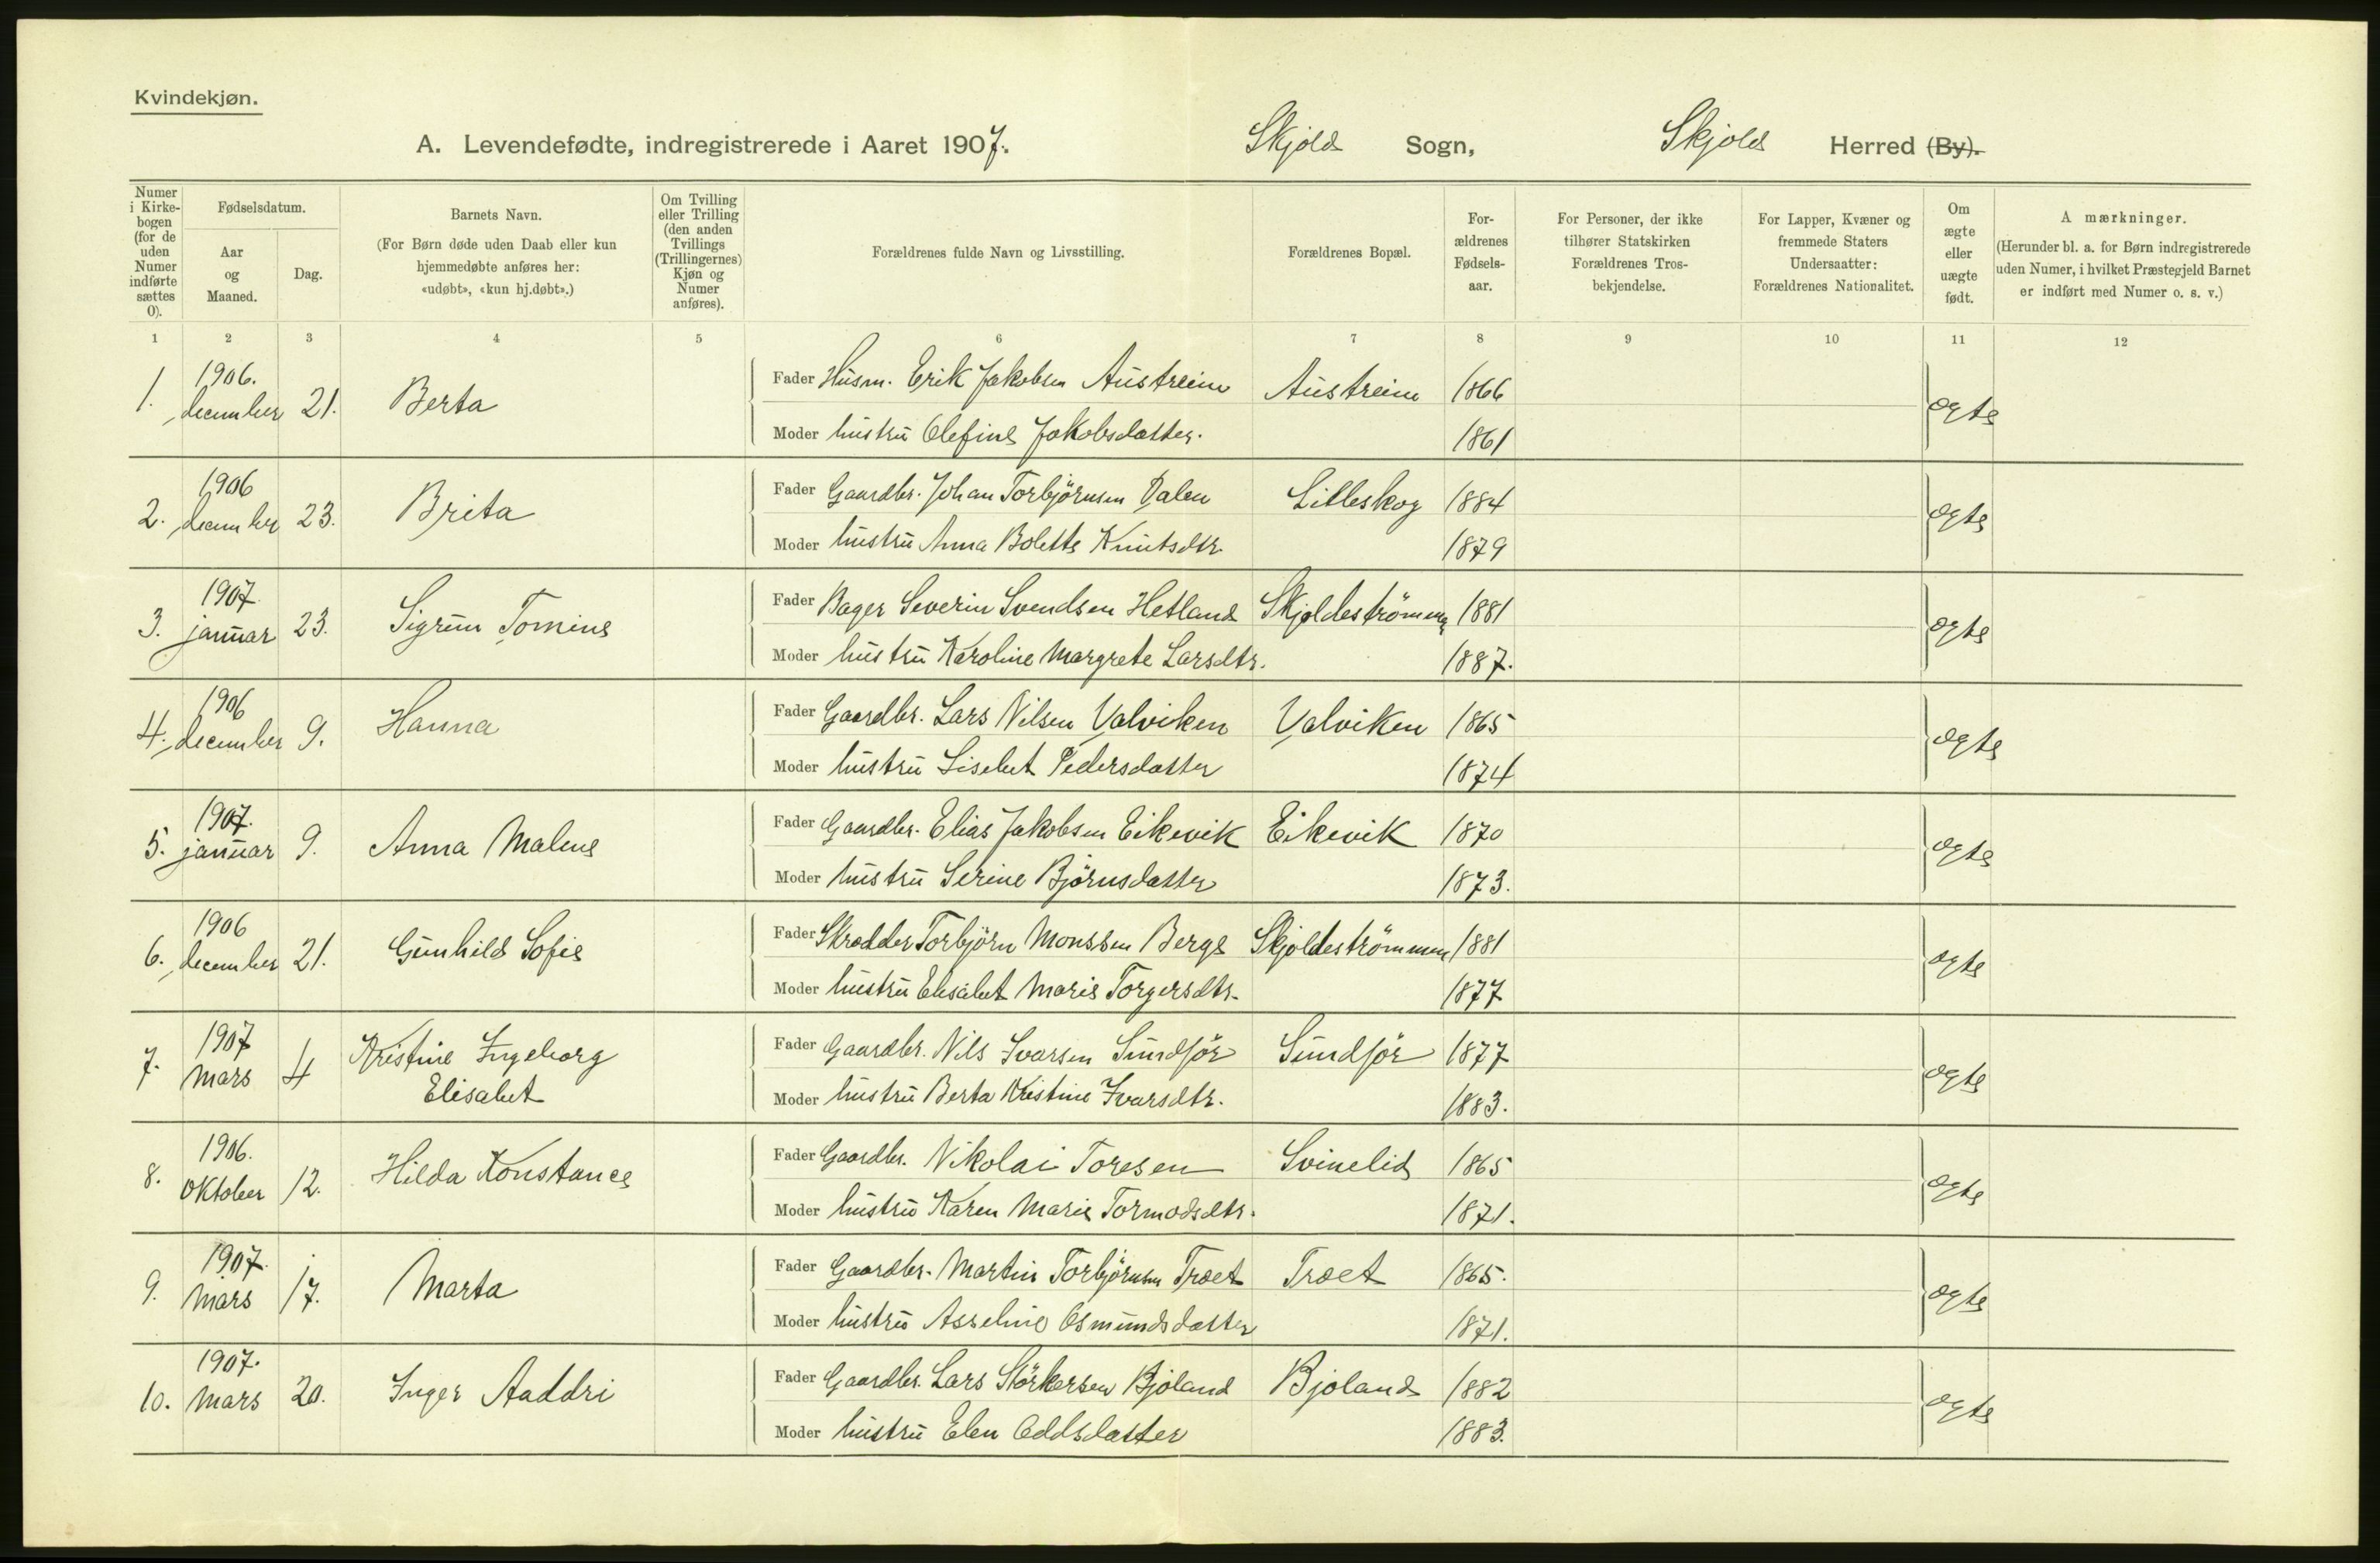 Kvindekjøn.
A. Levendefødte, indregistrerede i Aaret 1907. Skjold Sogn, Skjold Herred (By).
Numer i Kirke-bogen (for de uden Numer indførte sættes 0).
Fødselsdatum.
Aar og Maaned.
Dag.
Barnets Navn.
(For Børn døde uden Daab eller kun hjemmedøbte anføres her: «udøbt», «kun hj.døbt».)
Om Tvilling eller Trilling (den anden Tvillings (Trillingernes) Kjøn og Numer anføres).
Forældrenes fulde Navn og Livsstilling.
Forældrenes Bopæl.
For-ældrenes Fødsels-aar.
For Personer, der ikke tilhører Statskirken Forældrenes Tros-bekjendelse.
For Lapper, Kvæner og fremmede Staters Undersaatter: Forældrenes Nationalitet.
Om ægte eller uægte født.
Anmærkninger.
(Herunder bl. a. for Børn indregistrerede uden Numer, i hvilket Præstegjeld Barnet er indført med Numer o. s. v.)
1 2 3 4 5 6 7 8 9 10 11 12
1. 1906. december 21. Berta
Fader Husm. Erik Jakobsen Austreim Austreim 1866 ægte
Moder hustru Olefine Jakobsdatter. 1861
2. 1906 december 23. Brita
Fader Gaardbr. Johan Torbjörnsen Dalen Litleskog 1884 ægte
Moder hustru Anna Bolette Knutsdtr. 1879
3. 1907. januar 23. Sigrun Tomine
Fader Bager Severin Svendsen Hetland Skjoldeströmmen 1881 ægte
Moder hustru Karoline Margrete Larsdtr. 1887.
4. 1906 december 9. Hanna
Fader Gaardbr. Lars Nilsen Valviken Valviken 1865 ægte
Moder hustru Lisebet Pedersdatter 1874
5. 1907. januar 9. Anna Malene
Fader Gaardbr. Elias Jakobsen Eikevik Eikevik 1870 ægte
Moder hustru Serine Björnsdatter 1873.
6. 1906 december 21. Gunhild Sofie
Fader Skrædder Torbjörn Monssen Berge Skjoldeströmmen 1881 ægte
Moder hustru Elisabet Marie Torgersdtr. 1877
7. 1907 Mars 4 Kristine Ingeborg Elisabet
Fader Gaardbr. Nils Ivarsen Sundför Sundför 1877 ægte
Moder hustru Berta Kristine Ivarsdtr. 1883.
8. 1906. Oktober 12. Hilda Konstance
Fader Gaardbr. Nikolai Toresen Svinelid 1865 ægte
Moder hustru Karen Marie Tormodsdtr. 1871.
9. 1907. Mars 17. Marta
Fader Gaardbr. Martin Torbjörnsen Træet Træet 1865. ægte
Moder hustru Asseline Osmundsdatter 1871.
10. 1907. Mars 20. Inger Aaddri
Fader Gaardbr. Lars Störkersen Bjoland Bjoland 1882 ægte
Moder hustru Elen Oddsdatter 1883.